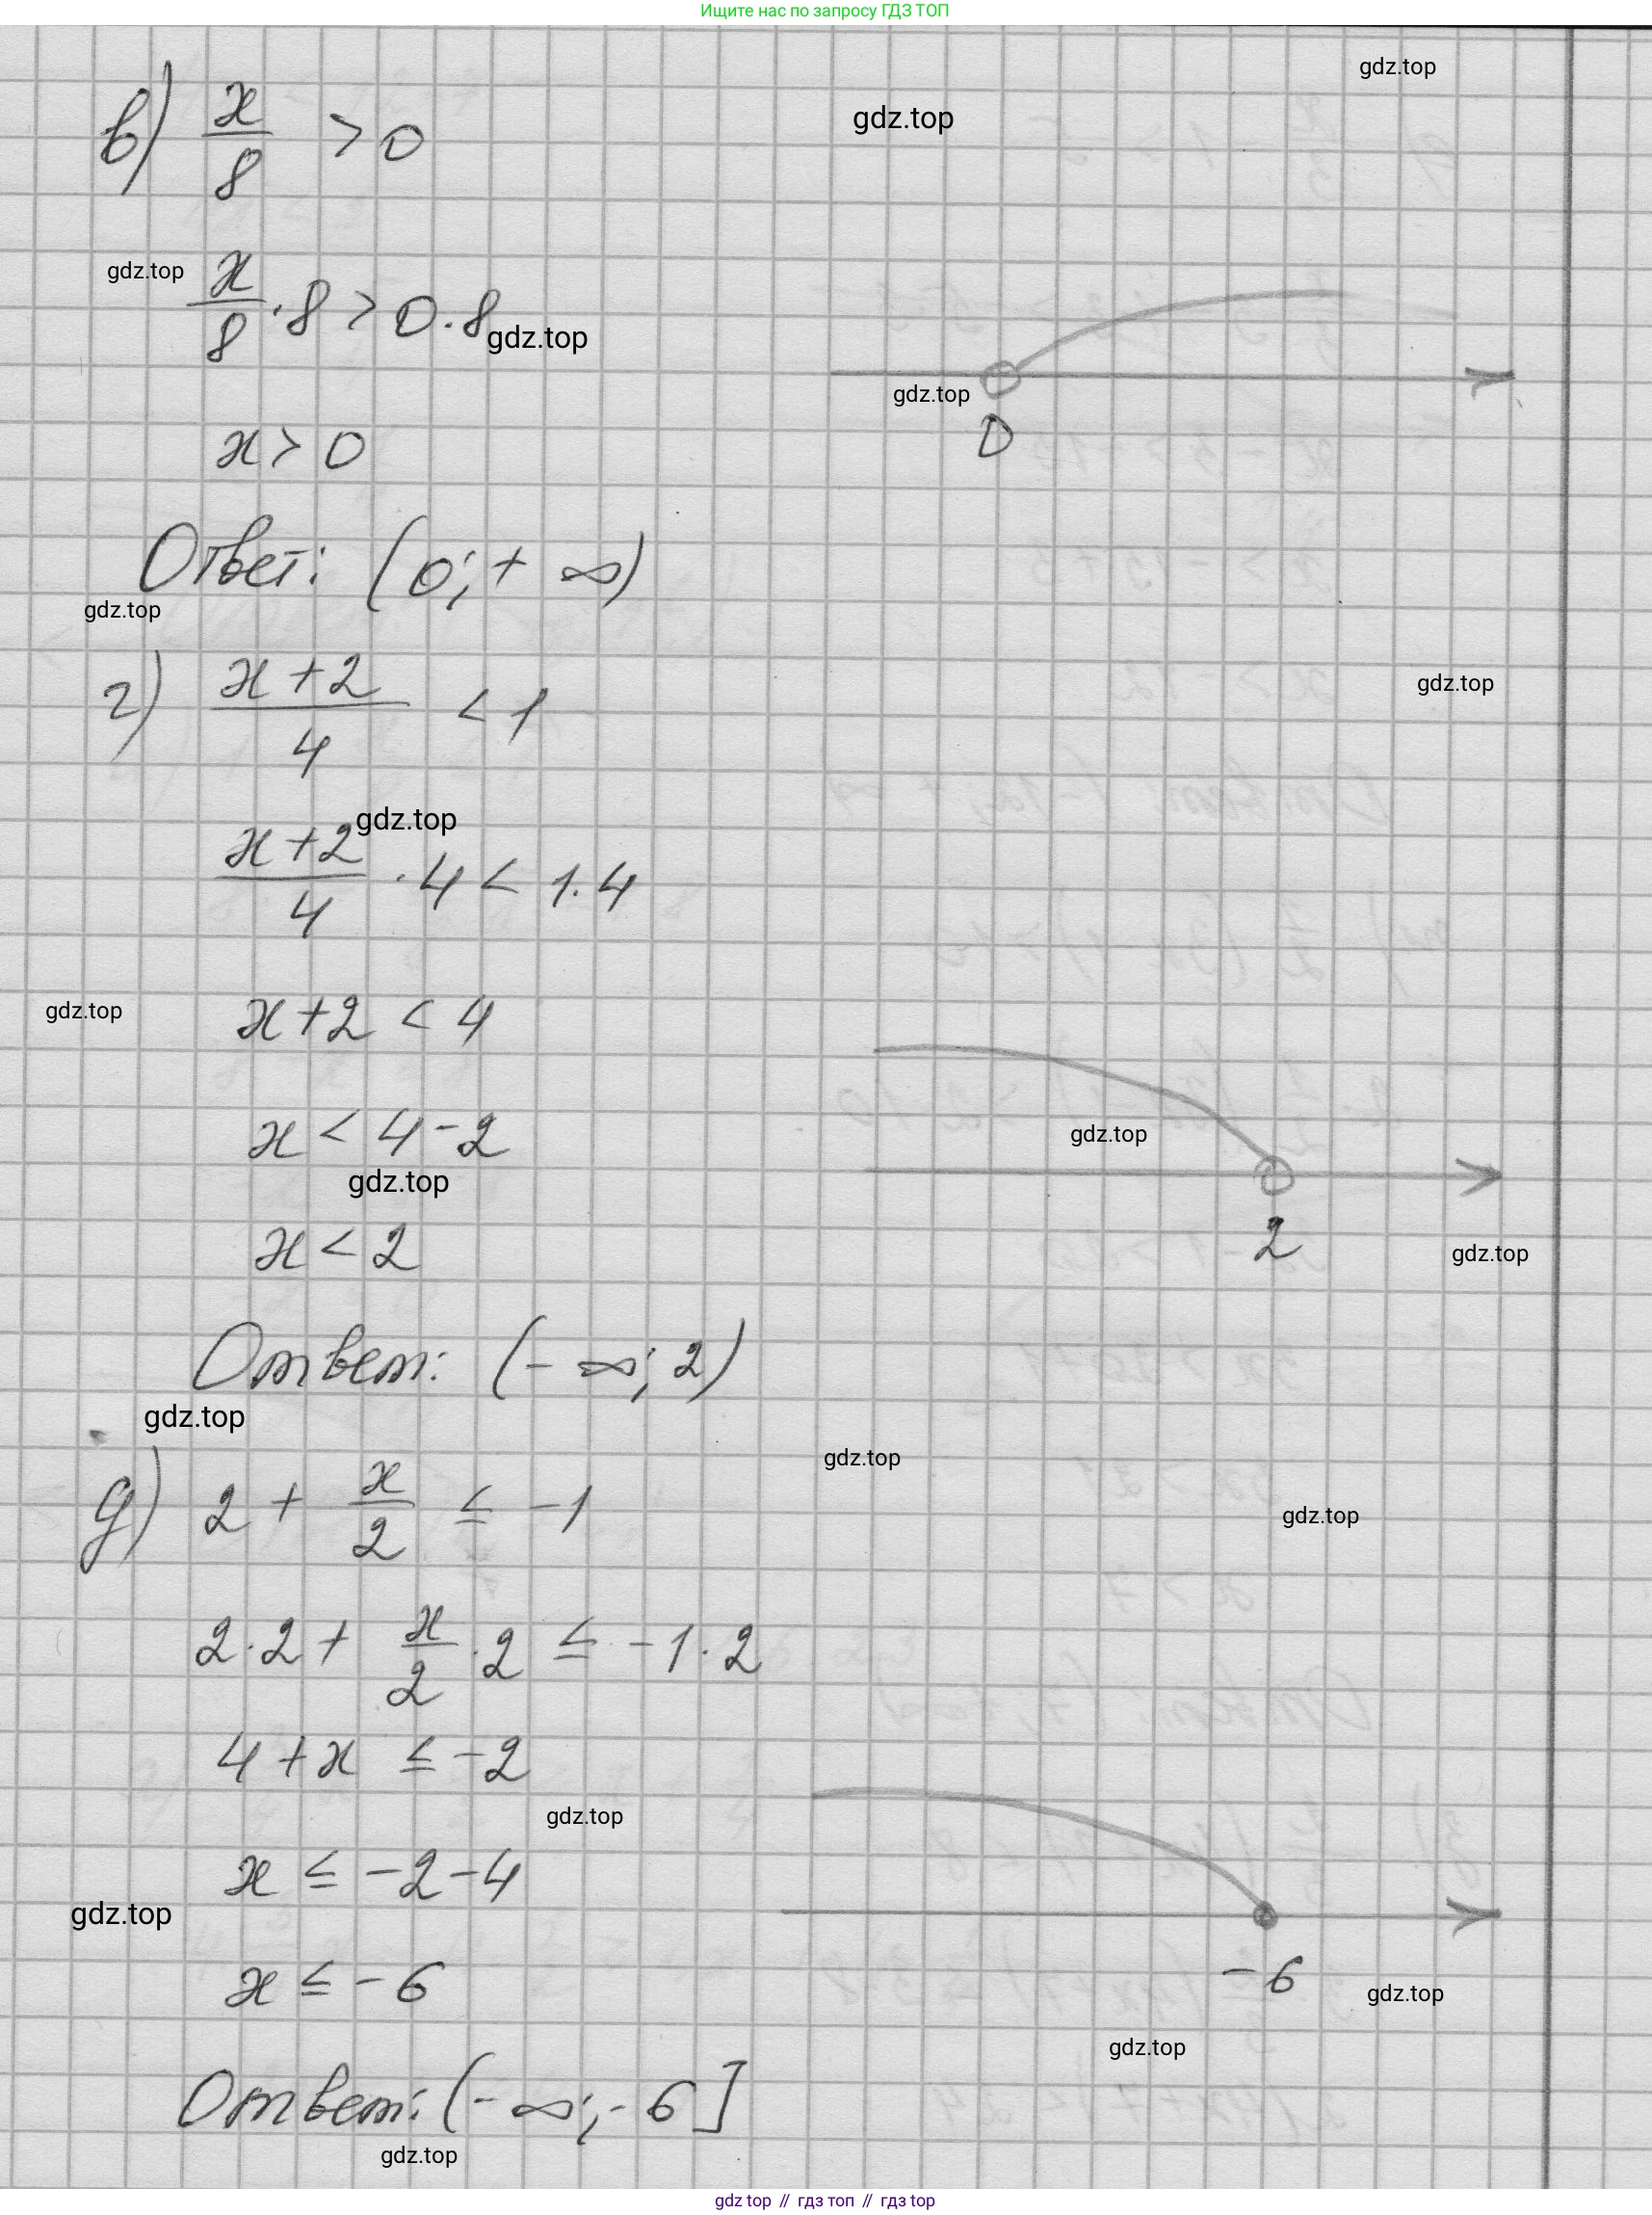 Ищите нас по запросу ГДЗ ТОП
gdz.top
gdz.top
в) x/8 > 0
gdz.top
x/8 · 8 > 0 · 8
gdz.top
gdz.top
0
x > 0
Ответ: (0; + ∞)
gdz.top
г) x + 2 / 4 < 1
gdz.top
gdz.top
x + 2 / 4 · 4 < 1 · 4
gdz.top
x + 2 < 4
x < 4 - 2
gdz.top
gdz.top
x < 2
2
gdz.top
Ответ: (- ∞; 2)
gdz.top
gdz.top
д) 2 + x/2 ≤ -1
gdz.top
2 · 2 + x/2 · 2 ≤ -1 · 2
4 + x ≤ -2
gdz.top
x ≤ -2 - 4
gdz.top
x ≤ -6
-6
gdz.top
gdz.top
Ответ: (- ∞; -6]
gdz.top
gdz top // гдз топ // гдз top